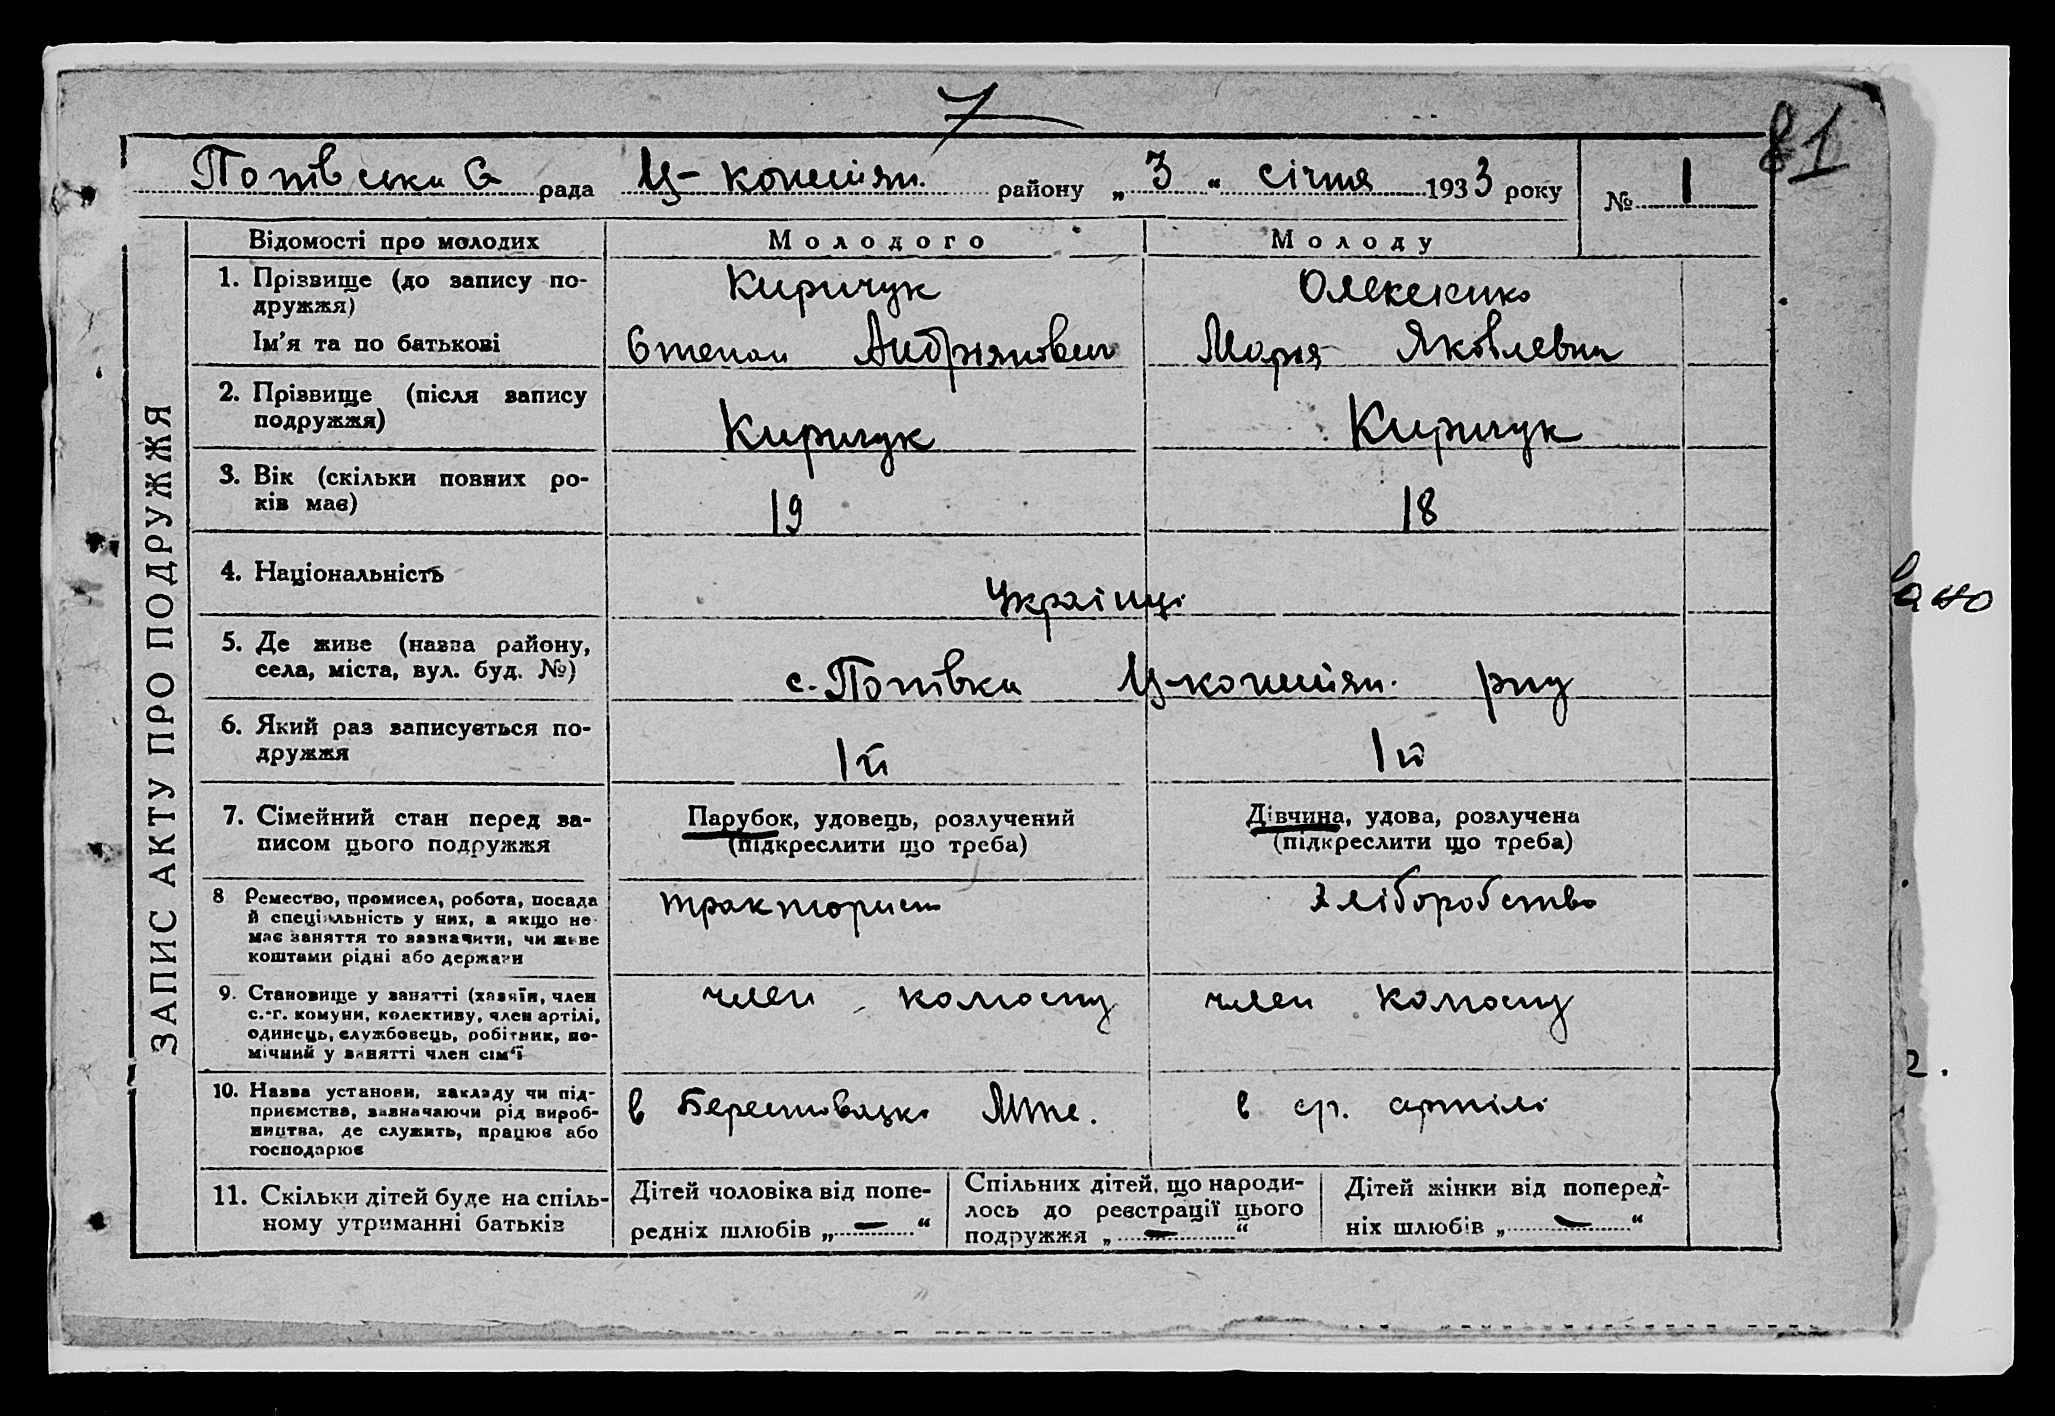 7
81
Попівська рада Ц- район району „3“ січня 1933 року № 1
Відомості про молодих Молодого Молоду
1. Прізвище (до запису по-
дружжя) Киричук Олексієнко
Ім'я та по батькові Степан Андріянович Марія Яковлевна
2. Прізвище (після запису
подружжя) Киричук Киричук
3. Вік (скільки повних ро-
ків має) 19 18
4. Національність Українці
5. Де живе (назва району,
села, міста, вул. буд. №) с. Попівка рну
6. Який раз записується по-
дружжя 1й 1й
7. Сімейний стан перед за-
писом цього подружжя
Парубок, удовець, розлучений
(підкреслити що треба)
Дівчина, удова, розлучена
(підкреслити що треба)
8 Ремество, промисел, робота, посада
й спеціяльність у них, а якщо не
має заняття то зазначити, чи живе
коштами рідні або держави
тракторист хліборобство
9. Становище у занятті (хазяїн, член
с.-г. комуни, колективу, член артілі,
одинець, службовець, робітник, по-
мічний у занятті член сім'ї
член колгоспу член колгоспу
10. Назва установи, закладу чи під-
приємства, зазначаючи рід вироб-
ництва, де служить, працює або
господарює
в Берестовецьк. МТС. в ср. артілі
11. Скільки дітей буде на спіль-
ному утриманні батьків
Дітей чоловіка від попе-
редніх шлюбів „—“
Спільних дітей, що народи-
лось до реєстрації цього
подружжя „—“
Дітей жінки від поперед-
ніх шлюбів „—“
ЗАПИС АКТУ ПРО ПОДРУЖЖЯ